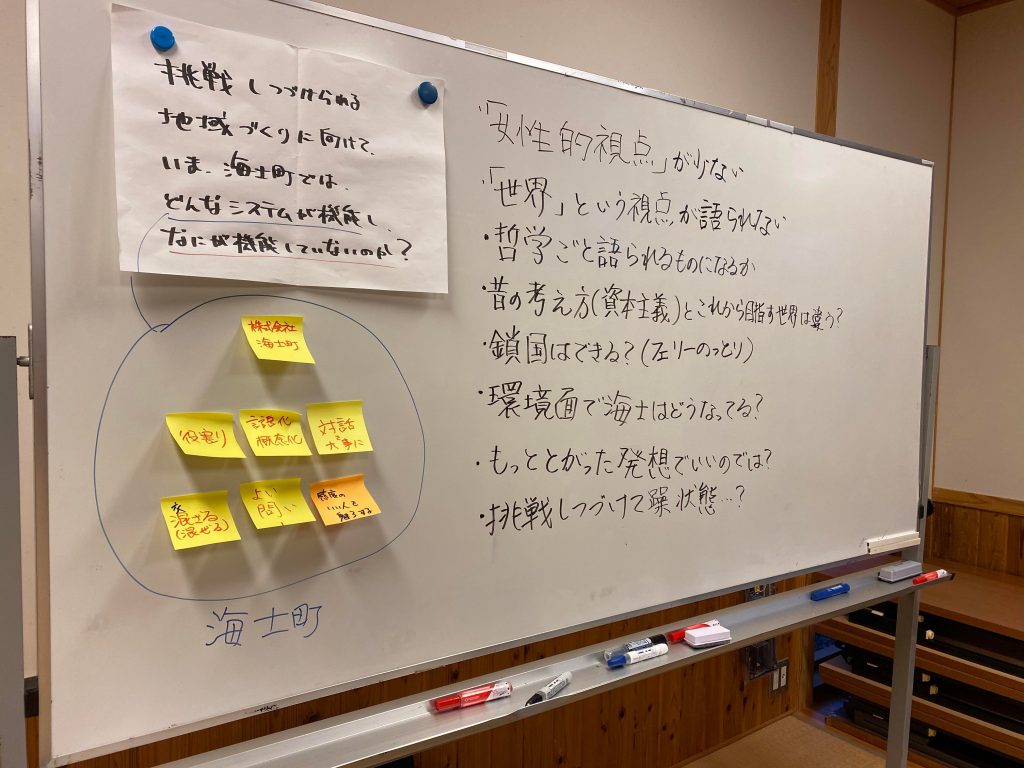 挑戦しつづけられる
地域づくりに向けて、
いま、海士町では、
どんなシステムが機能し、
なにが機能していないのか?
株式会社
海士町
役割り
言語化
概念化
対話
が事に
混ざる
(混ぜる)
よい
問い
感度の
いい人を
魅了する
海士町
・「女性的視点」が少ない
・「世界」という視点が語られない
・哲学ごと語られるものになるか
・昔の考え方(資本主義)とこれから目指す世界は違う?
・鎖国はできる?(フェリーのっとり)
・環境面で海士はどうなってる?
・もっととがった発想でいいのでは?
・挑戦しつづけて躁状態…?